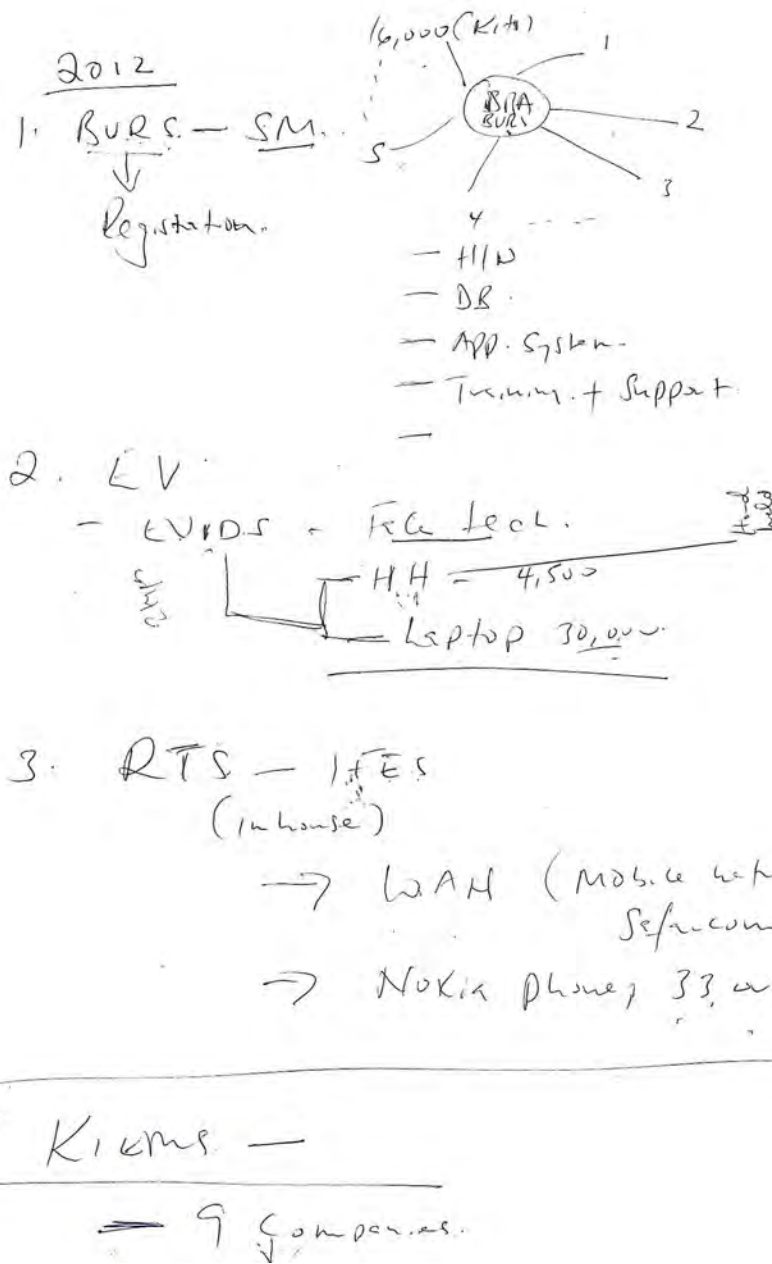 2012
16,000 (Kits)
1. BVRS - SM.
Registation.
BRA
BVRS
1
2
3
4
5
- H/W
- DB.
- App. System.
- Training. + Support.
-
2. EV
- EVIDS - Face tech.
Hand held
HH - 4,500
Laptop 30,000
3. RTS - IFES
(inhouse)
→ WAN (Mobile
Safaricom
→ Nokia phones 33
KIEMS -
- 9 Companies.